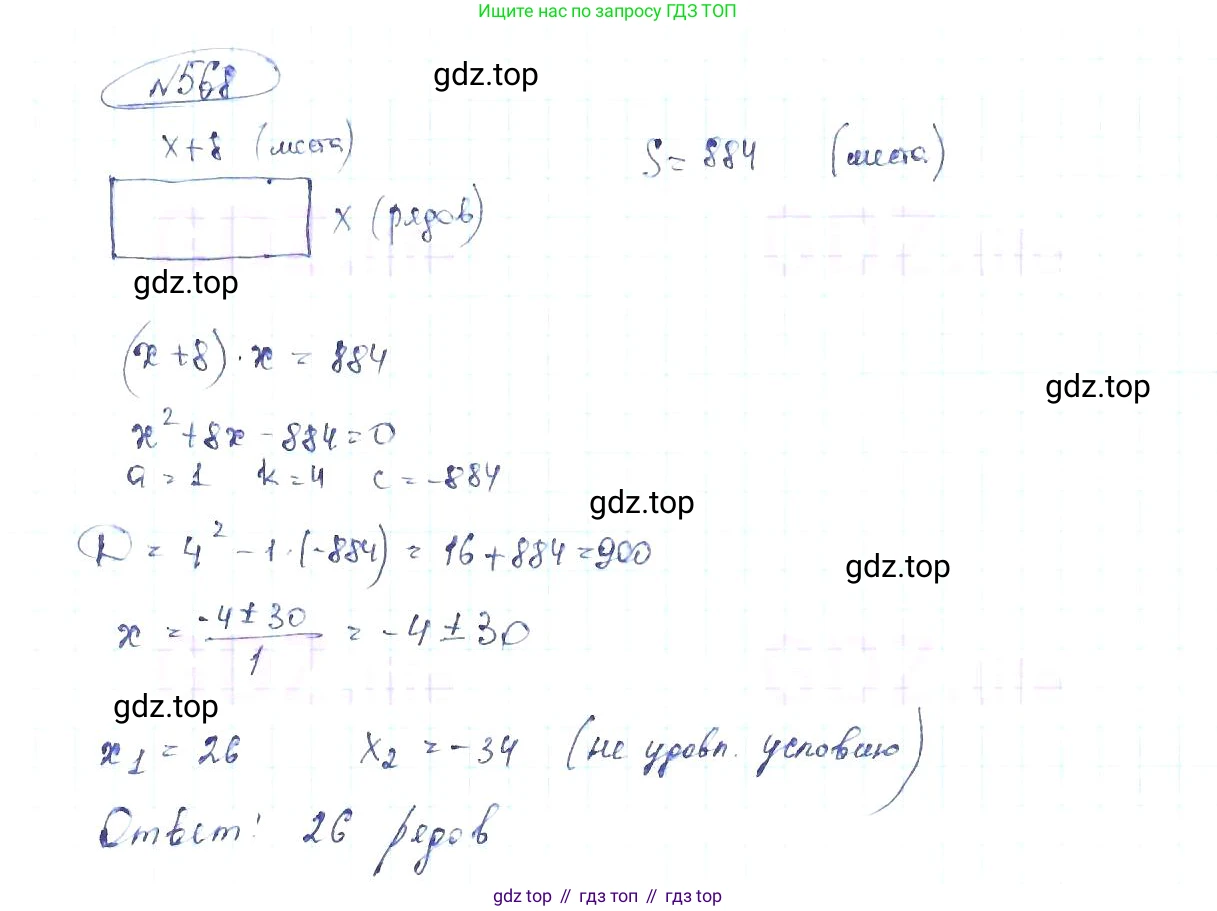 Ищите нас по запросу ГДЗ ТОП
№568
gdz.top
x+8 (места)
S = 884 (места)
x (рядов)
gdz.top
(x+8)·x = 884
gdz.top
x²+8x-884=0
a=1 k=4 c=-884
gdz.top
D = 4² - 1·(-884) = 16+884=900
gdz.top
x = \frac{-4±30}{1} = -4±30
gdz.top
x₁ = 26 x₂ = -34 (не удовл. условию)
Ответ: 26 рядов
gdz top // гдз топ // гдз top